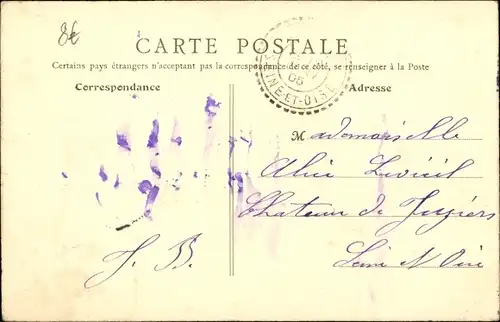 8€
CARTE POSTALE
Certains pays étrangers n'acceptant pas la correspondance de ce côté, se renseigner à la Poste
SEINE-ET-OISE
Correspondance
Adresse
Mademoiselle
Alice
Chateau de Juziers
Seine et Oise
J. B.